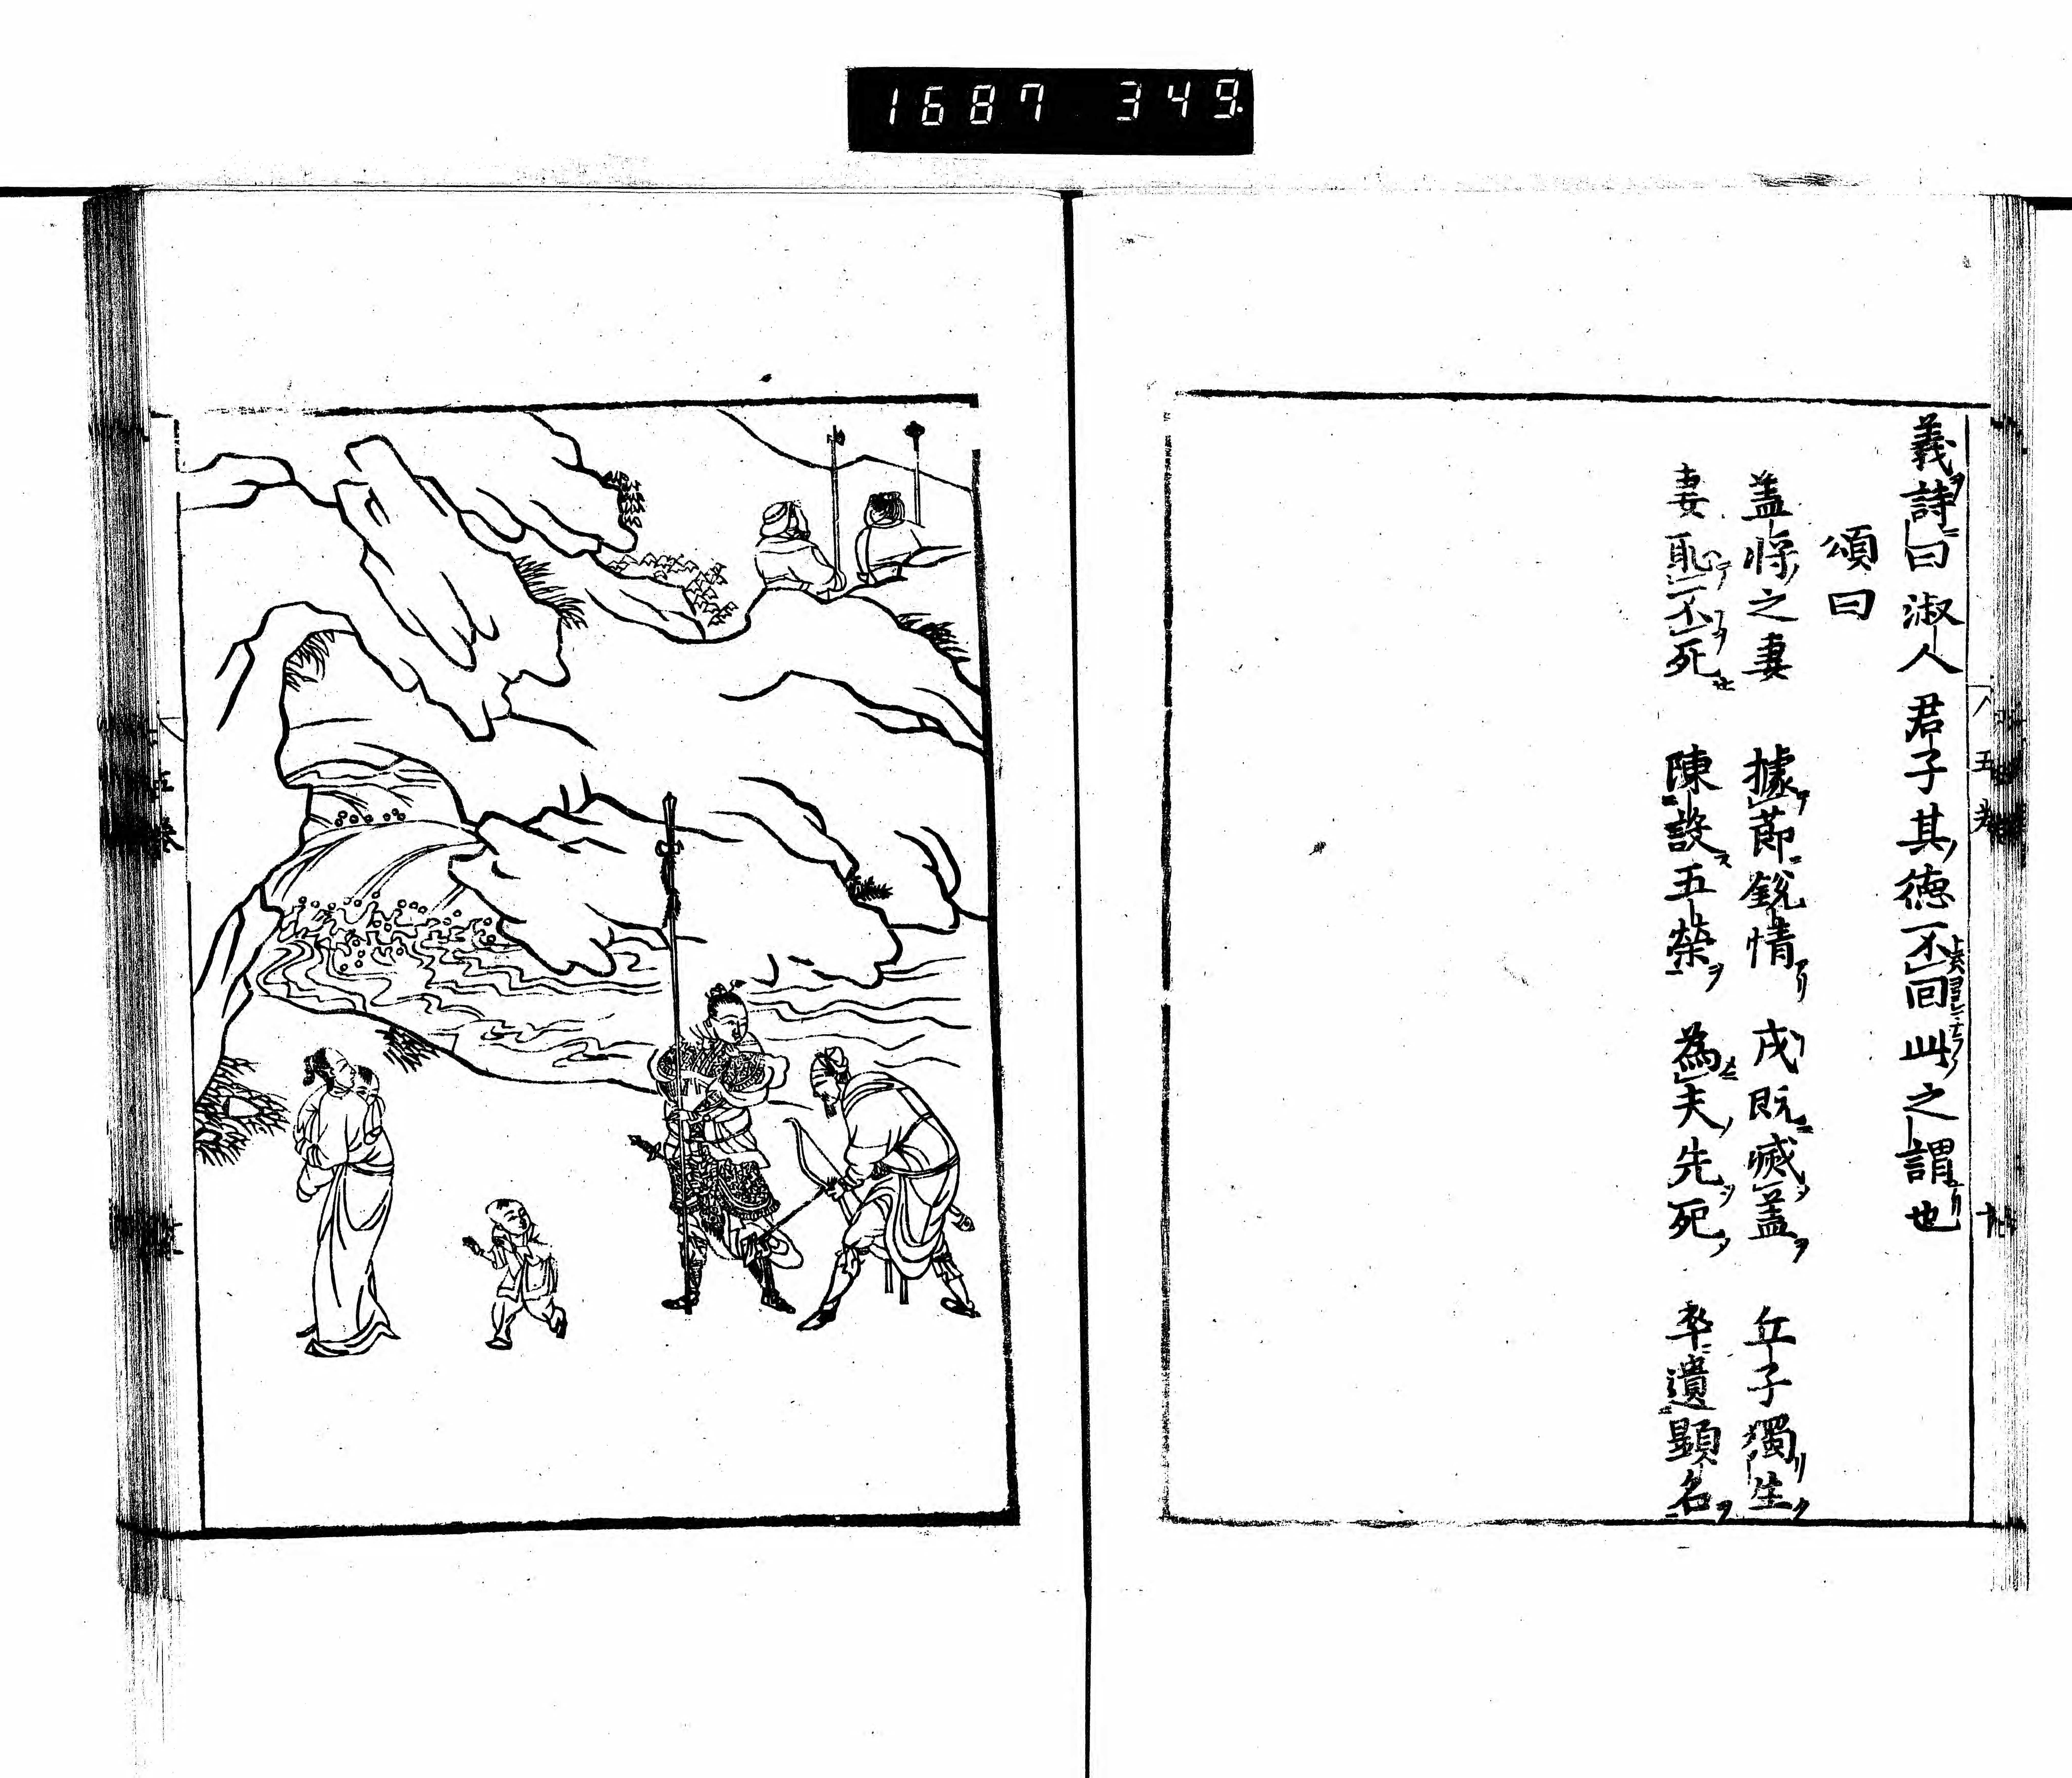 1687 349
義詩曰淑人君子其德不回此之謂也
頌曰
盖將之妻 據節銳情 戎既滅盖 丘子獨生
妻恥不死 陳設五榮 為夫先死 卒遺顯名
五卷